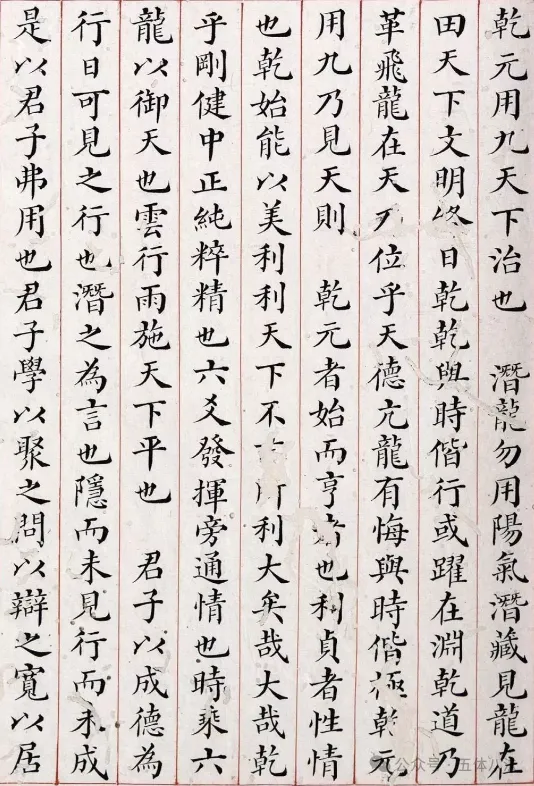 乾元用九天下治也 潛龍勿用陽氣潛藏見龍在
田天下文明終日乾乾與時偕行或躍在淵乾道乃
革飛龍在天乃位乎天德亢龍有悔與時偕極乾元
用九乃見天則 乾元者始而亨者也利貞者性情
也乾始能以美利利天下不所利大矣哉大哉乾
乎剛健中正純粹精也六爻發揮旁通情也時乘六
龍以御天也雲行雨施天下平也 君子以成德為
行日可見之行也潛之為言也隱而未見行而未成
是以君子弗用也君子學以聚之問以辯之寬以居
公众号·五体